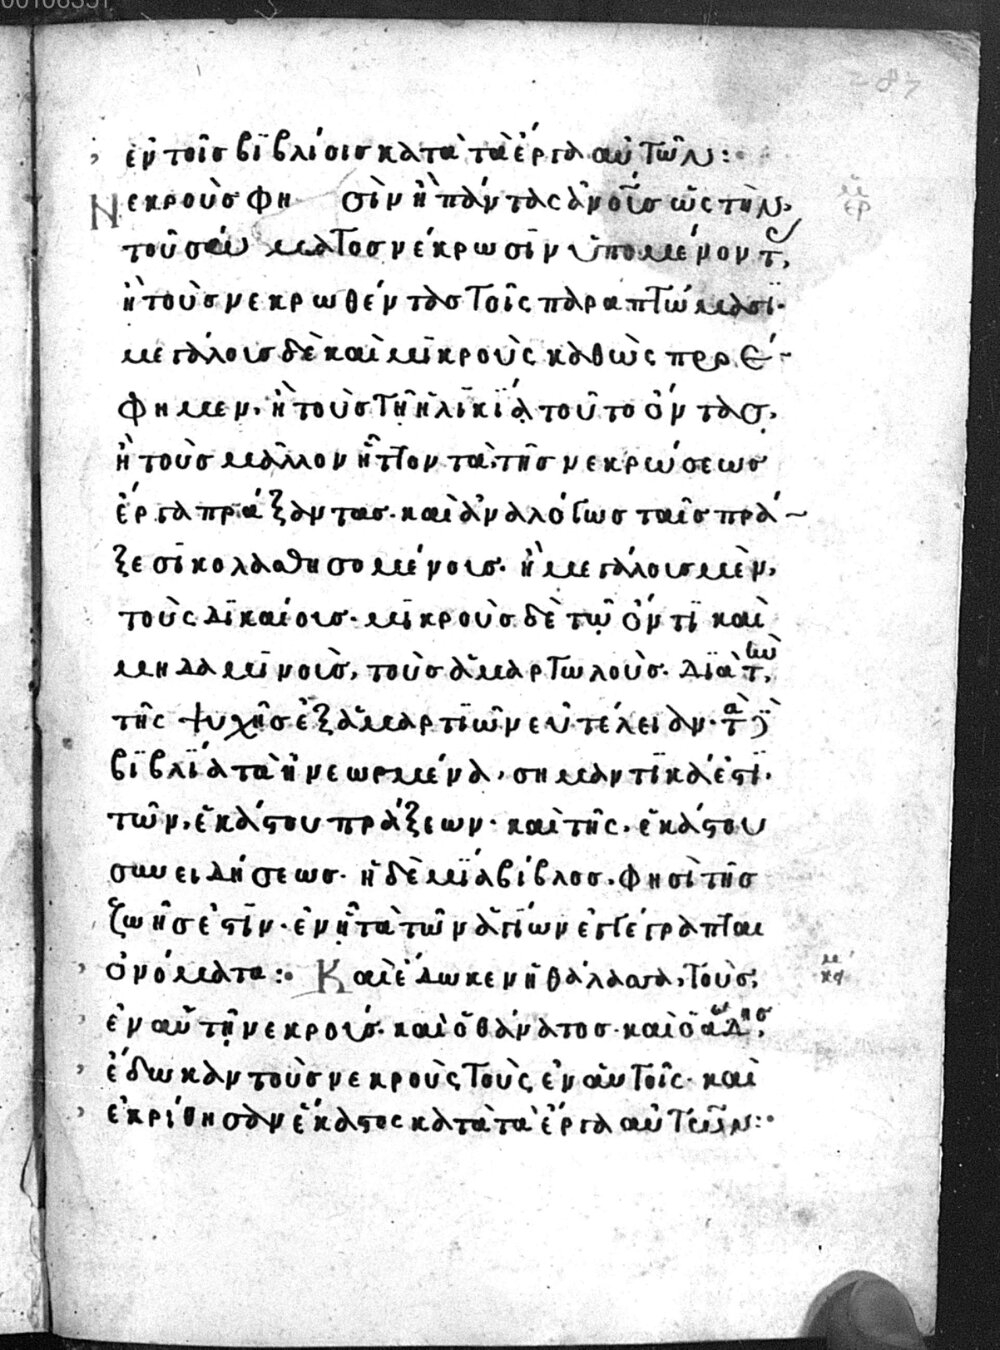 00106351
287
ἐν τοῖς βϊβλίοις κατὰ τὰ ἔργα αὐτῶν :
Νεκροὺς φησὶν ἢ πάντας ἀνο̅υ̅ς ὡς τὴν
τοῦ σώματος νέκρωσϊν ὑπομένοντ,
ἢ τοὺς νεκρωθέντας τοῖς παραπτώμασϊ·
μεγάλους δὲ καὶ μϊκροὺς καθὼς προέ-
φημεν, ἢ τοὺς τῇ ἡλϊκϊᾳ τοῦτο ὄντας,
ἢ τοὺς μᾶλλον ἧττον τὰ τῆς νεκρώσεως
ἔργα πράξαντας· καὶ ἀναλόγως ταῖς πρά-
ξεσϊ κολασθησομένους· ἢ μεγάλους μὲν,
τοὺς δϊκαίους· μϊκροὺς δὲ τῷ ὄντϊ καὶ
μηδαμϊνοὺς, τοὺς ἁμαρτωλούς· δϊὰ τὴν
τῆς ψυχῆς ἐξ ἁμαρτϊῶν εὐτέλειαν· τὰ δὲ
βϊβλϊα τὰ ἠνεωγμένα, σημαντϊκά ἐστϊ·
τῶν, ἑκάστου πράξεων· καὶ τῆς, ἑκάστου
συνειδήσεως· ἡ δὲ μϊα βίβλος, φησὶ τῆς
ζωῆς ἐστϊν· ἐν ᾗ τὰ τῶν ἁγϊων ἐγγέγραπται
ὀνόματα : Καὶ ἔδωκεν ἡ θάλασσα, τοὺς
ἐν αὐτῇ νεκρούς· καὶ ὁ θάνατος· καὶ ὁ ἅδης,
ἔδωκαν τοὺς νεκροὺς τοὺς ἐν αὐτοῖς· καὶ
ἐκρίθησαν ἕκαστος κατὰ τὰ ἔργα αὐτῶν :